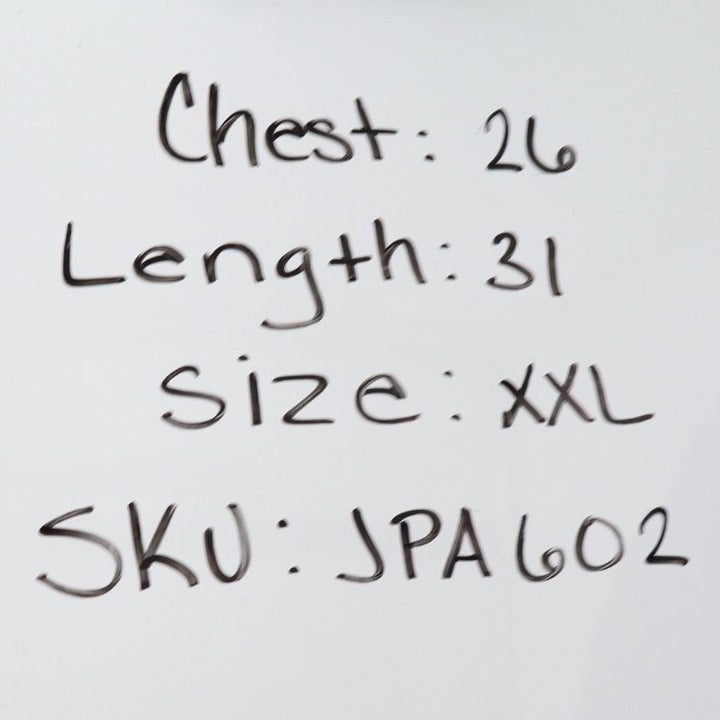 Chest: 26
Length: 31
Size: XXL
SKU: JPA602